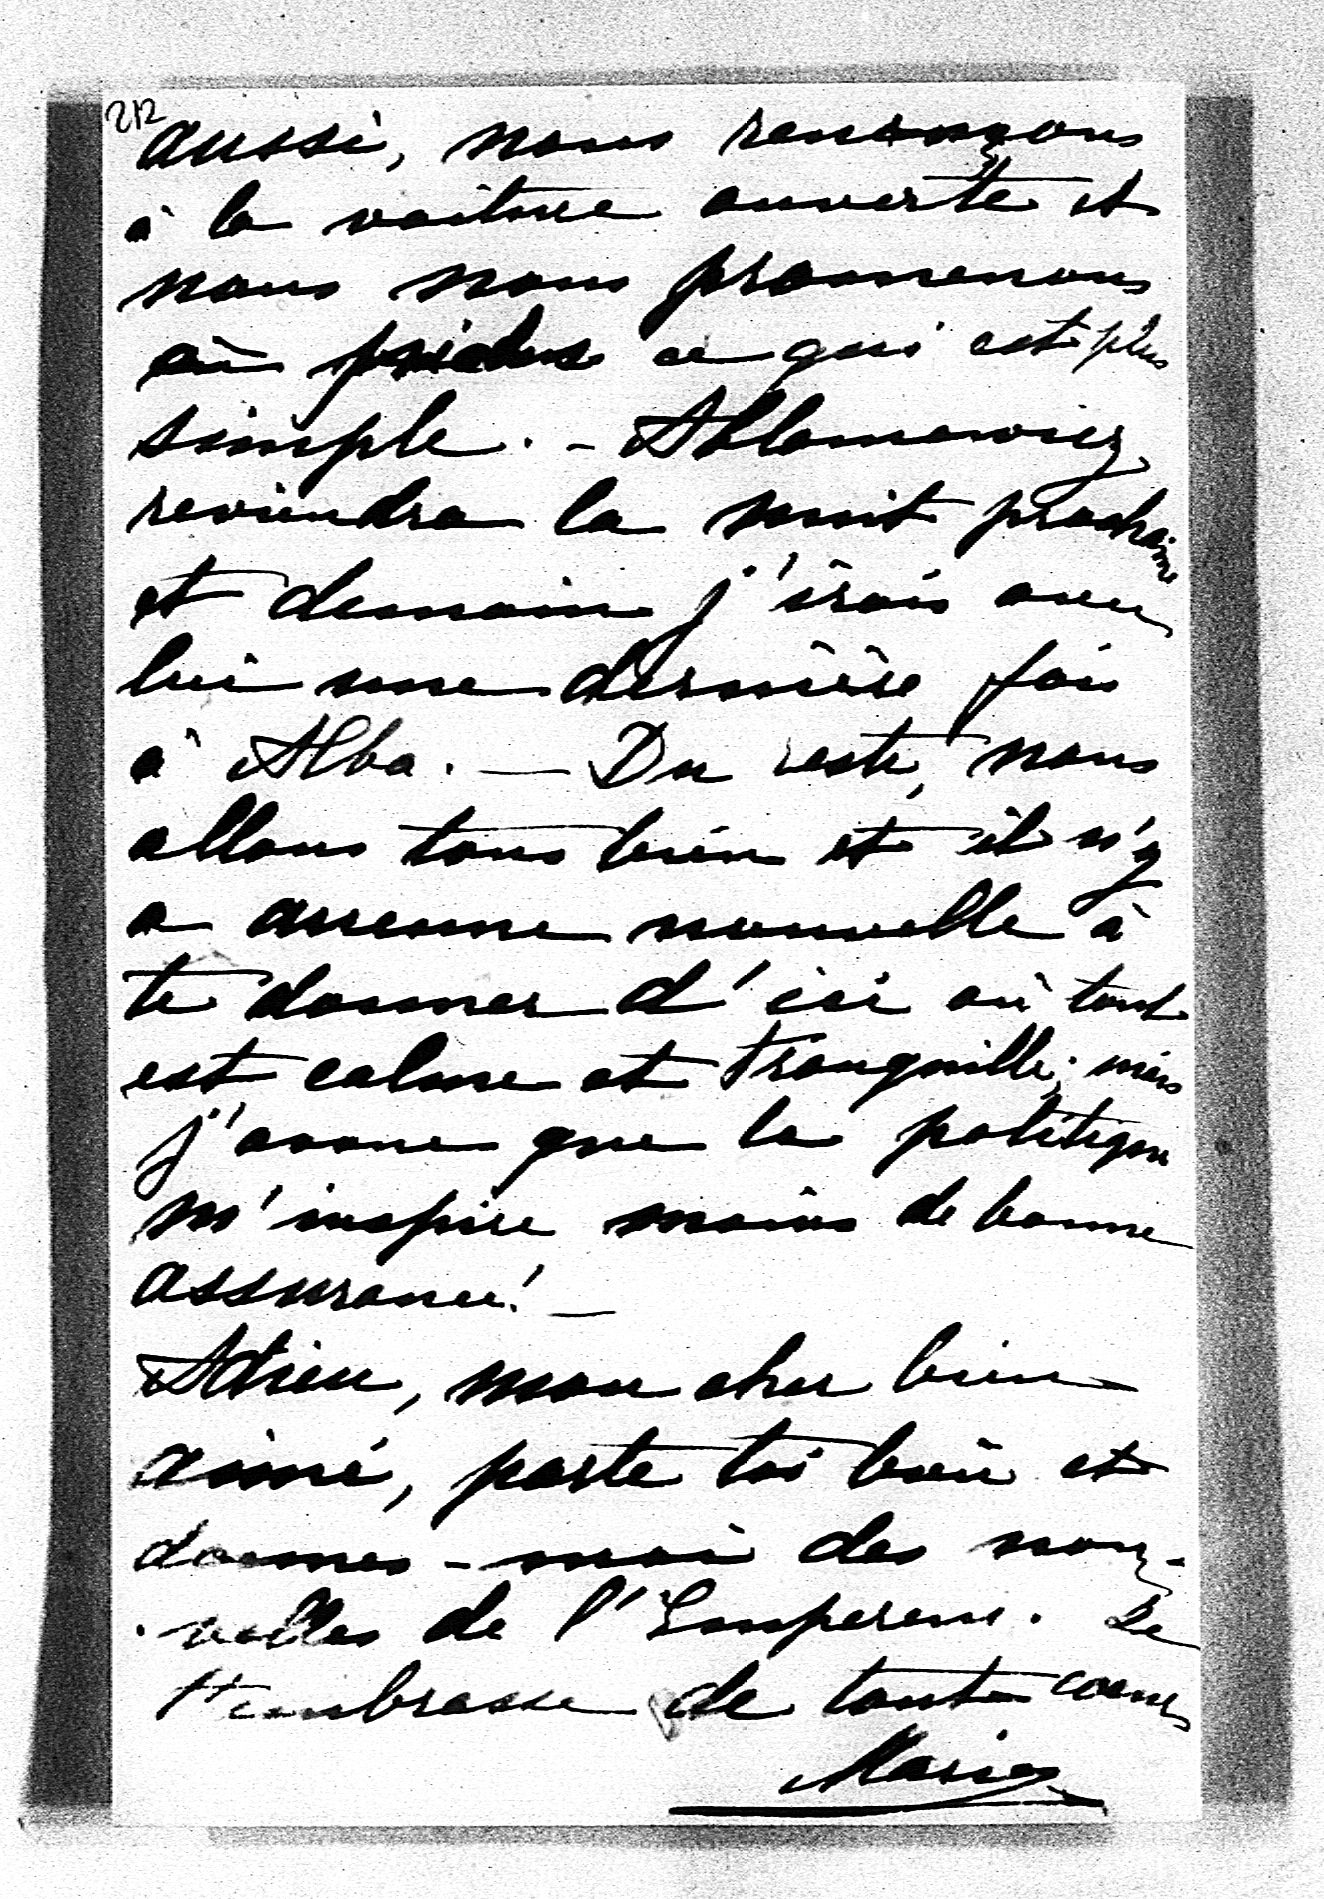 212
aussi, nous renonçons
à la voiture ouverte et
nous nous promenons
à pieds ce qui est plus
simple. - Ablamowicz
reviendra la nuit prochaine
et demain j'irais avec
lui une dernière fois
à Alba. — Du reste, nous
allons tous bien et il n'y
a aucune nouvelle à
te donner d'ici où tout
est calme et tranquille; mais
j'avoue que la politique
m'inspire moins de bonne
assurance! —
Adieu, mon cher bien
aimé, porte toi bien et
donnes-moi des nou-
velles de l'Empereur. Je
t'embrasse de tout coeur
Marie